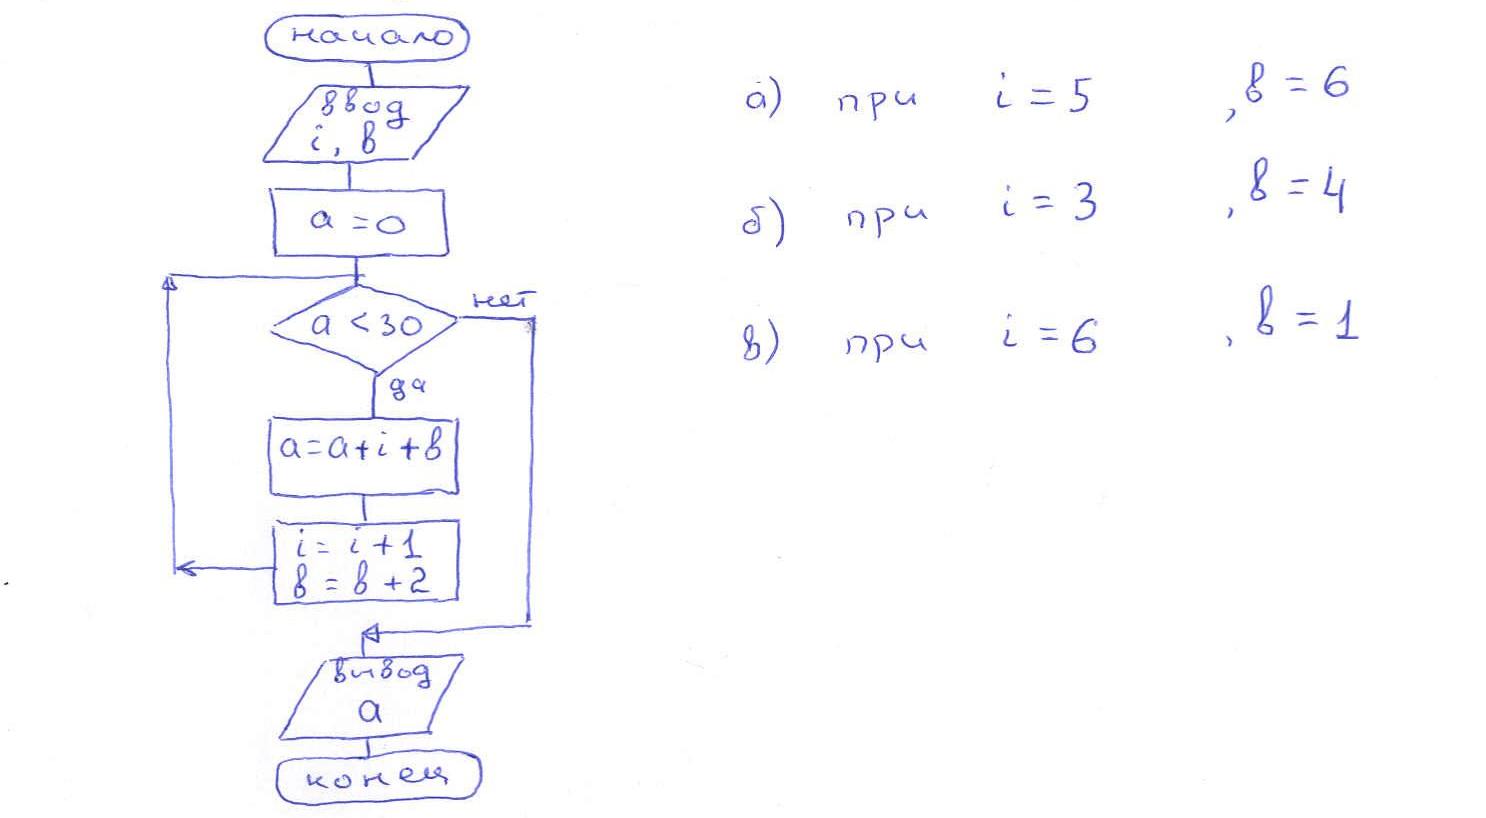 начало
ввод
i, в
a = 0
a < 30
нет
да
a = a + i + в
i = i + 1
в = в + 2
вывод
a
конец
а) при i = 5 , в = 6
б) при i = 3 , в = 4
в) при i = 6 , в = 1